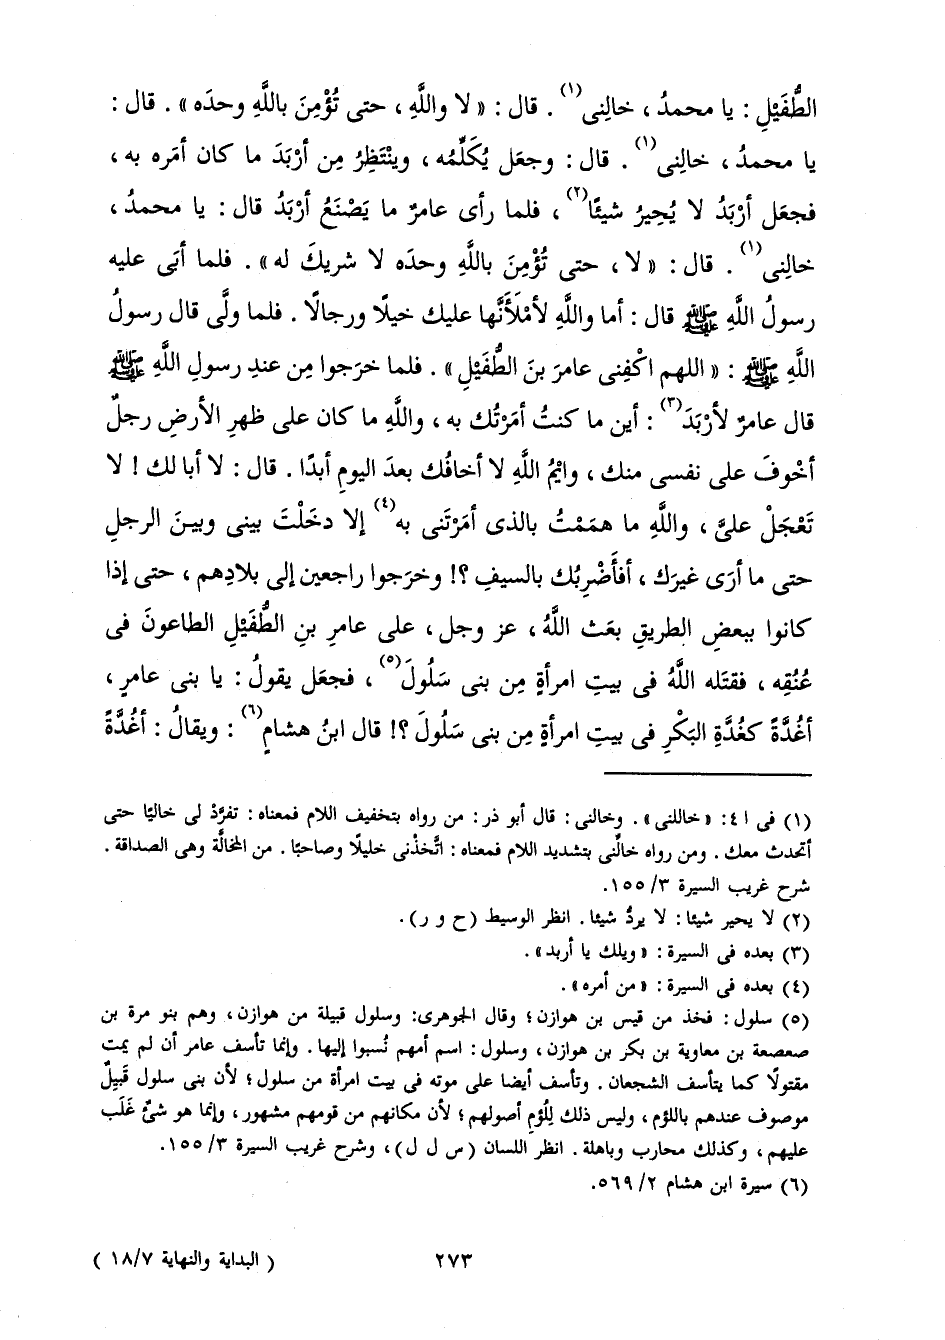 الطُّفَيْلِ : يا محمدُ ، خالِنى(١) . قال : « لا واللَّهِ ، حتى تُؤْمِنَ باللَّهِ وحدَه » . قال :
يا محمدُ ، خالِنى(١) . قال : وجعَل يُكَلِّمُه ، وينْتَظِرُ مِن أرْبَدَ ما كان أمَره به ،
فجعَل أرْبَدُ لا يُحِيرُ شيئًا(٢) ، فلما رأى عامرٌ ما يَصْنَعُ أرْبَدُ قال : يا محمدُ ،
خالِنى(١) . قال : « لا ، حتى تُؤْمِنَ باللَّهِ وحدَه لا شريكَ له » . فلما أبَى عليه
رسولُ اللَّهِ ﷺ قال : أما واللَّهِ لأمْلَأَنَّها عليك خيلًا ورجالًا . فلما ولَّى قال رسولُ
اللَّهِ ﷺ : « اللهم اكْفِنى عامرَ بنَ الطُّفَيْلِ » . فلما خرَجوا مِن عندِ رسولِ اللَّهِ ﷺ
قال عامرٌ لأرْبَدَ(٣) : أين ما كنتُ أمَرْتُك به ، واللَّهِ ما كان على ظهرِ الأرضِ رجلٌ
أخْوفَ على نفسى منك ، وايْمُ اللَّهِ لا أخافُك بعدَ اليومِ أبدًا . قال : لا أبا لك ! لا
تَعْجَلْ علىَّ ، واللَّهِ ما همَمْتُ بالذى أمَرْتَنى به(٤) إلا دخَلْتَ بينى وبينَ الرجلِ
حتى ما أرَى غيرَك ، أفأَضْرِبُك بالسيفِ ؟! وخرَجوا راجعين إلى بلادِهم ، حتى إذا
كانوا ببعضِ الطريقِ بعَث اللَّهُ ، عز وجل ، على عامرِ بنِ الطُّفَيْلِ الطاعونَ فى
عُنُقِه ، فقتَله اللَّهُ فى بيتِ امرأةٍ مِن بنى سَلُولَ(٥) ، فجعَل يقولُ : يا بنى عامرٍ ،
أغُدَّةً كغُدَّةِ البَكْرِ فى بيتِ امرأةٍ مِن بنى سَلُولَ ؟! قال ابنُ هشامٍ(٦) : ويقالُ : أغُدَّةً
(١) فى ا ٤: « خاللنى » . وخالنى : قال أبو ذر : من رواه بتخفيف اللام فمعناه : تفرَّدْ لى خاليًا حتى
أتحدث معك . ومن رواه خالِّنى بتشديد اللام فمعناه : اتَّخذْنى خليلًا وصاحبًا . من المخالَّة وهى الصداقة .
شرح غريب السيرة ٣/ ١٥٥.
(٢) لا يحير شيئا : لا يردُّ شيئا . انظر الوسيط (ح و ر) .
(٣) بعده فى السيرة : « ويلك يا أربد» .
(٤) بعده فى السيرة : « من أمره» .
(٥) سلول : فخذ من قيس بن هوازن ؛ وقال الجوهرى: وسلول قبيلة من هوازن ، وهم بنو مرة بن
صعصعة بن معاوية بن بكر بن هوازن ، وسلول : اسم أمهم نُسبوا إليها . وإنما تأسف عامر أن لم يمت
مقتولًا كما يتأسف الشجعان . وتأسف أيضا على موته فى بيت امرأة من سلول ؛ لأن بنى سلول قَبِيلٌ
موصوف عندهم باللؤم ، وليس ذلك لِلُؤمِ أصولهم ؛ لأن مكانهم من قومهم مشهور ، وإنما هو شئٌ غَلَب
عليهم ، وكذلك محارب وباهلة . انظر اللسان (س ل ل) ، وشرح غريب السيرة ٣/ ١٥٥.
(٦) سيرة ابن هشام ٢/ ٥٦٩.
٢٧٣
( البداية والنهاية ١٨/٧ )